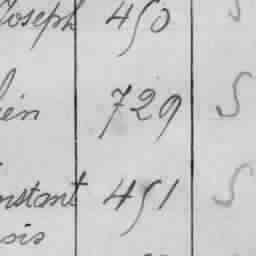 Joseph 450 S
ien 729 S
nstant 451 S
sis